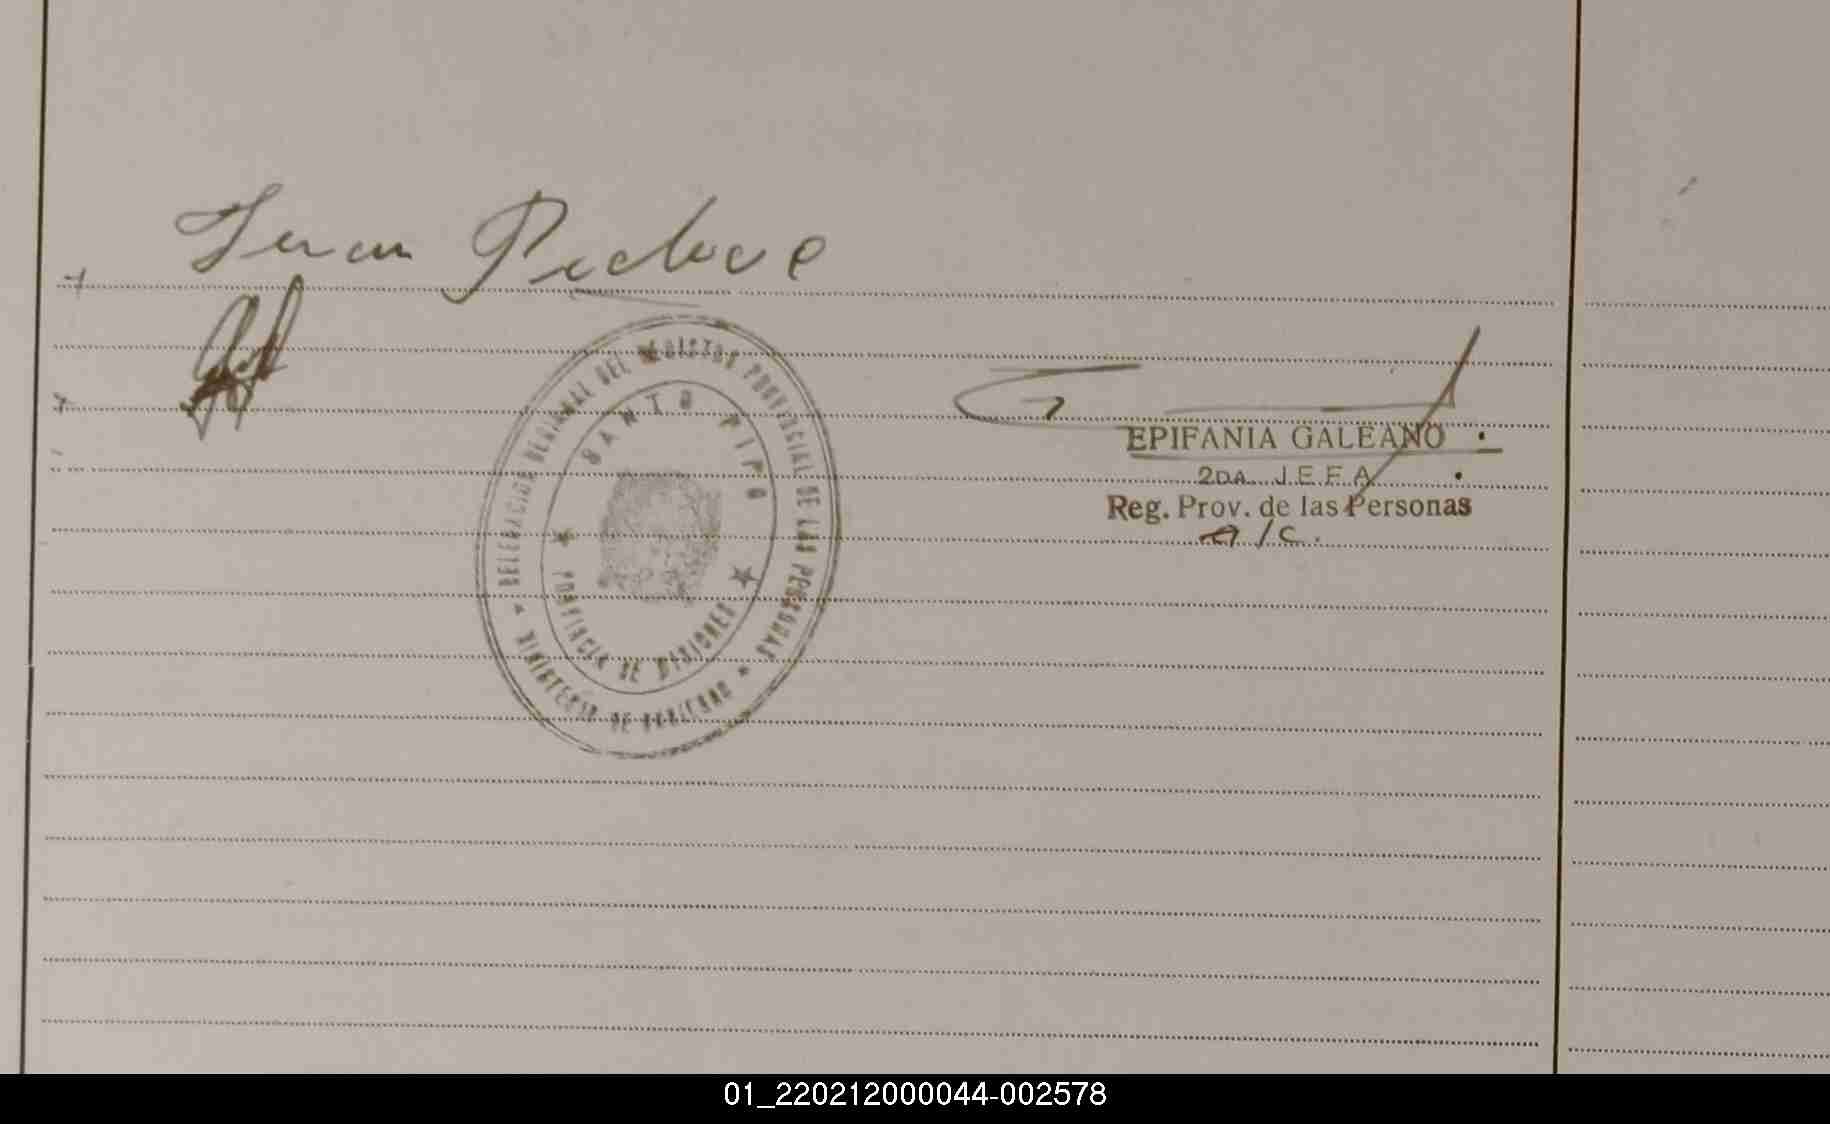 Juan
DELEGACION REGIONAL DEL REGISTRO PROVINCIAL DE LAS PERSONAS
SANTO PIPO
PROVINCIA DE MISIONES
MINISTERIO DE GOBIERNO
EPIFANIA GALEANO
2DA. JEFA
Reg. Prov. de las Personas
A/C.
01_220212000044-002578